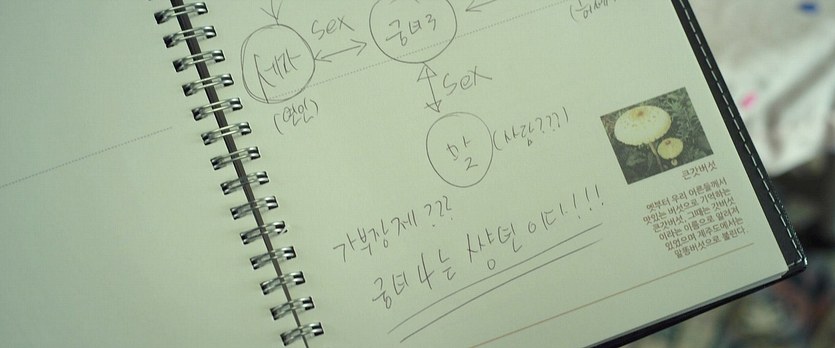 sex
세자
궁녀3
(연인)
sex
말
(사람???)
가부장제???
궁녀 4는 썅년이다!!!
큰갓버섯
옛부터 우리 어른들께서
맛있는 버섯으로 기억하는
큰갓버섯. 그때는 갓버섯
이라는 이름으로 알려져
있었으며 제주도에서는
말똥버섯으로 불린다.